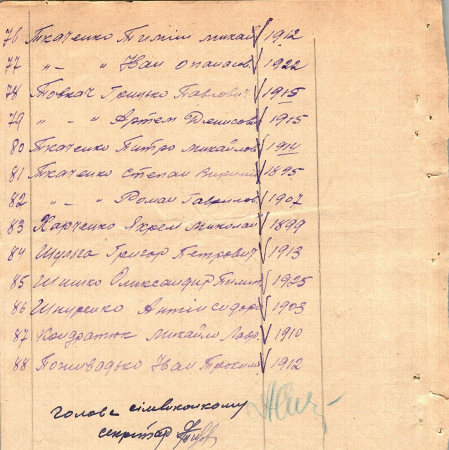 76 Ткаченко Тиміш Михай 1912
77 -"- " Іван Опанасов 1922
78 Товкач Грицько Павлович 1915
79 " - " Артем Денисов 1915
80 Ткаченко Питро Михайлов 1914
81 Ткаченко Степан 1895
82 -"- " Роман Гаврилов 1907
83 Харченко Яхрем Миколай 1899
84 Григор Петрович 1913
85 Шишко Олександир Пилип 1925
86 Шкуренко Антін Сидоро 1903
87 Кондратюк Михайло Лавр 1910
88 Іван Трохим 1912
Голова сільвиконкому
секретар